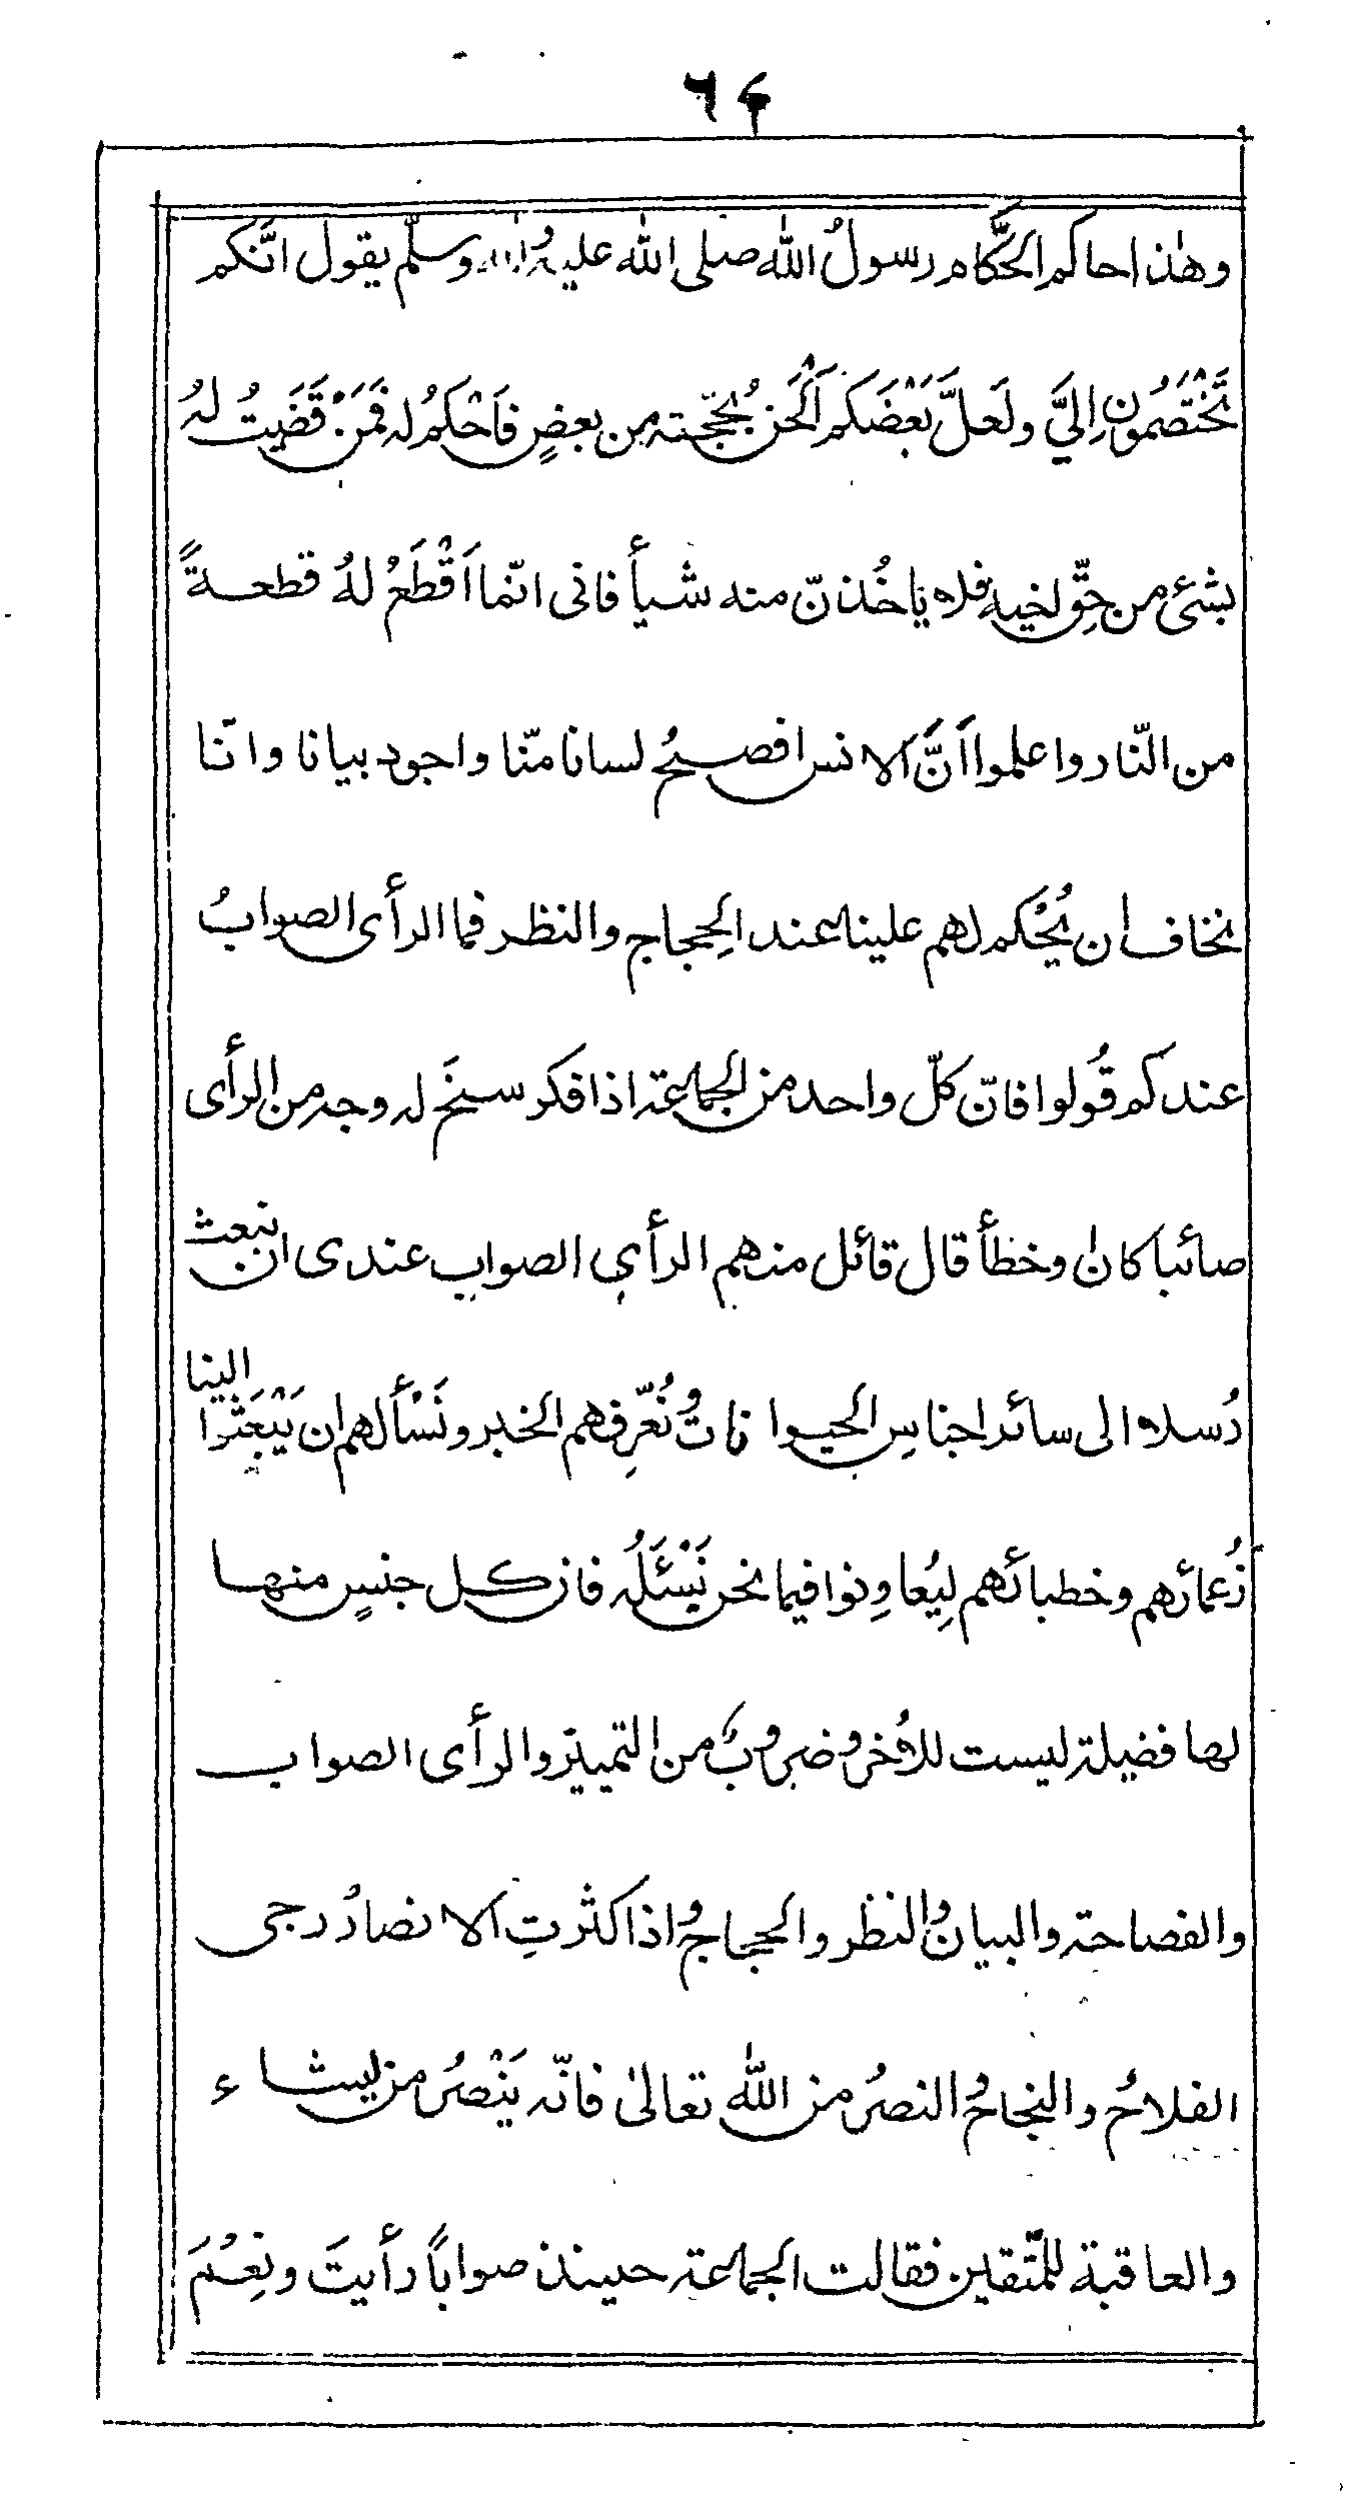 ۶۴
وهٰذا حاكم الحَكّام رسولُ الله صلى الله عليهُ وسلّم يقول انّكم
تَخْتَصَمُون اِليَّ ولَعلَّ بَعْضَكم اَلْحَن بُحجّته من بعضٍ فاَحْكمُ له فمَنْ قَضَيتُ لهُ
بشئ من حقِّ اخيه فلا ياخُذنّ منه شيأ فانى انّما اَقْطَعُ لهُ قطعةً
من النّار واعلموا اَنَّ الانس افصحُ لسانا منّا واجود بيانا وانّا
نخاف ان يُحْكم لهم علينا عند الحِجاج والنظر فما الرأى الصوابُ
عندكم قُولوا فانّ كلّ واحد من الجماعة اذا فكر سنحَ له وجه من الرأى
صائبا كان وخطأ قال قائل منهم الرأي الصواب عندى ان نبعث
رُسلا الى سائر اجناسِ الحيوانات ونُعّرِفهم الخبر ونَسْأَلهم ان يَبْعَثوا الينا
زُعمائهم وخطبائهم لِيُعاوِنوا فيما نحن نَسْئَلُه فان كل جنسٍ منها
لها فضيلة ليست للاُخرٰ وضروبٌ من التمييز والرأى الصواب
والفصاحة والبيانُ والنظر والحجاجُ واذا كثرتِ الانصارُ رجى
الفلاحُ والنجاحُ والنصرُ من الله تعالىٰ فانّه يَنْصرُ من يشاء
والعاقبة للمتّقين فقالت الجماعة حينئذ صواباً رأيتَ ونِعْمَ